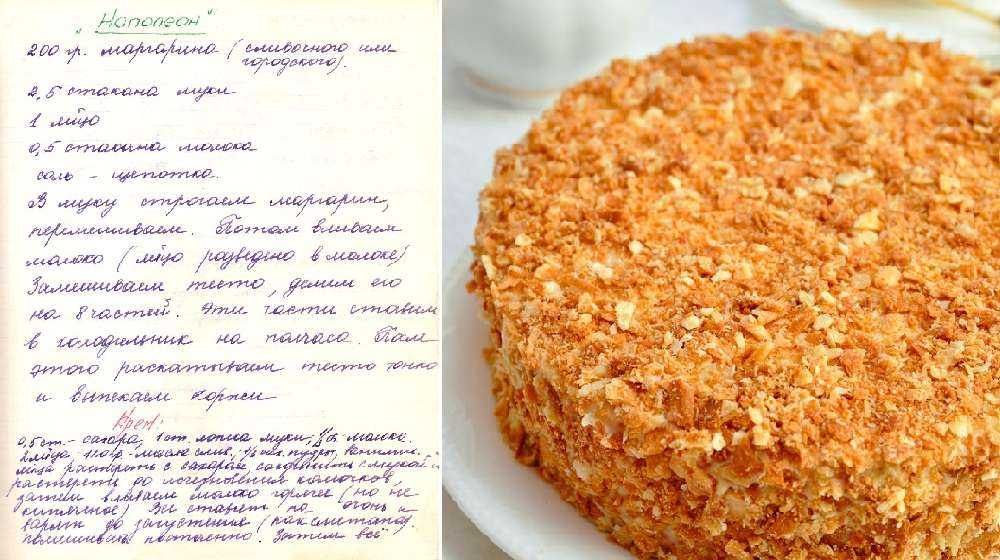 "Наполеон"
200 гр. маргарина (сливочного или
городского).
2,5 стакана муки
1 яйцо
0,5 стакана молока
соль - щепотка.
В муку строгаем маргарин,
перемешиваем. Потом вливаем
молоко (яйцо разведено в молоке)
Замешиваем тесто, делим его
на 8 частей. Эти части ставим
в холодильник на полчаса. После
этого раскатываем тесто тонко
и выпекаем коржи
Крем:
0,5 ст. - сахара, 1 ст. ложка муки, молока.
яйца, масла слив., ванилин.
яйца растереть с сахаром соединить с мукой и
растереть до исчезновения комочков,
затем вливаем молоко горячее (но не
кипячёное) Всё ставят на огонь и
варят до загустения (как сметана)
помешивая постоянно. Затем всё